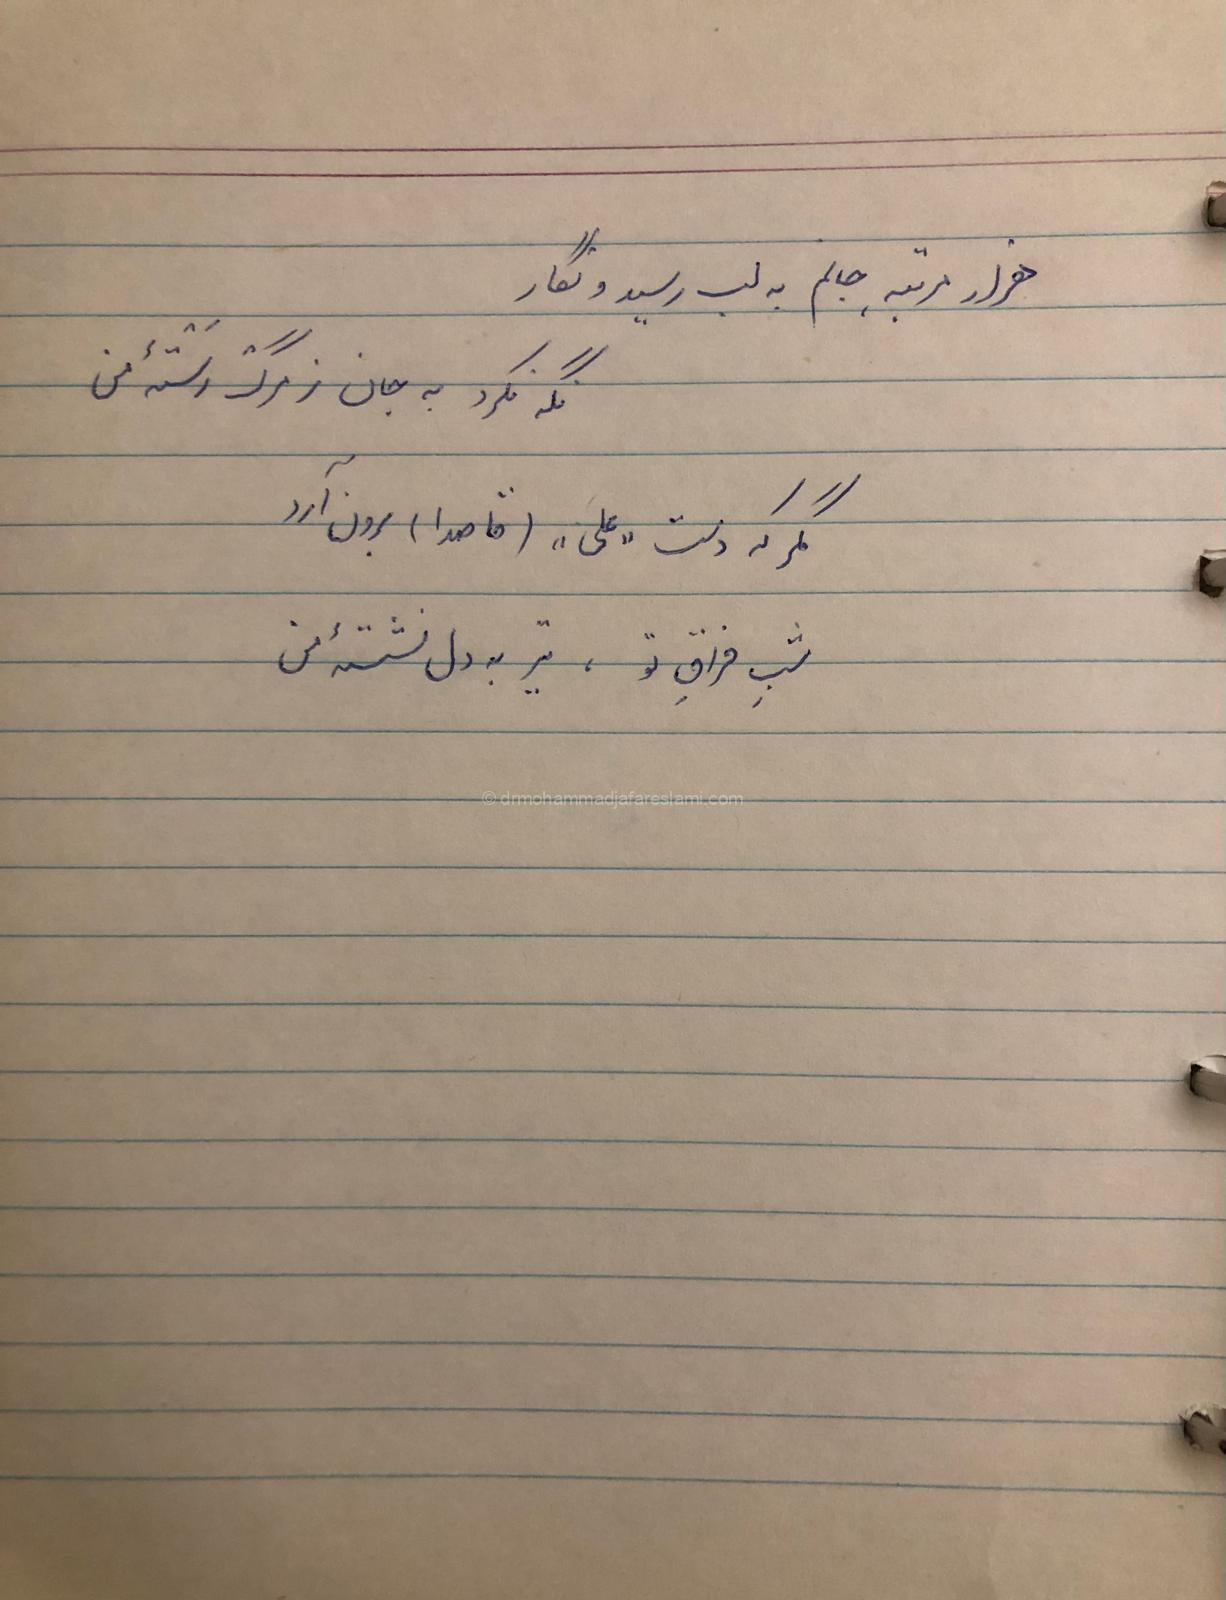 هزار مرتبه، جانم به لب رسید و نگار
نگه نکرد به جان ز مرگ رَسْتهٔ من
مگر که دست «علی» (قاصدا) برون آرد
شبِ فراقِ تو ، تیر به دل نشستهٔ من
© drmohammadjafareslami.com